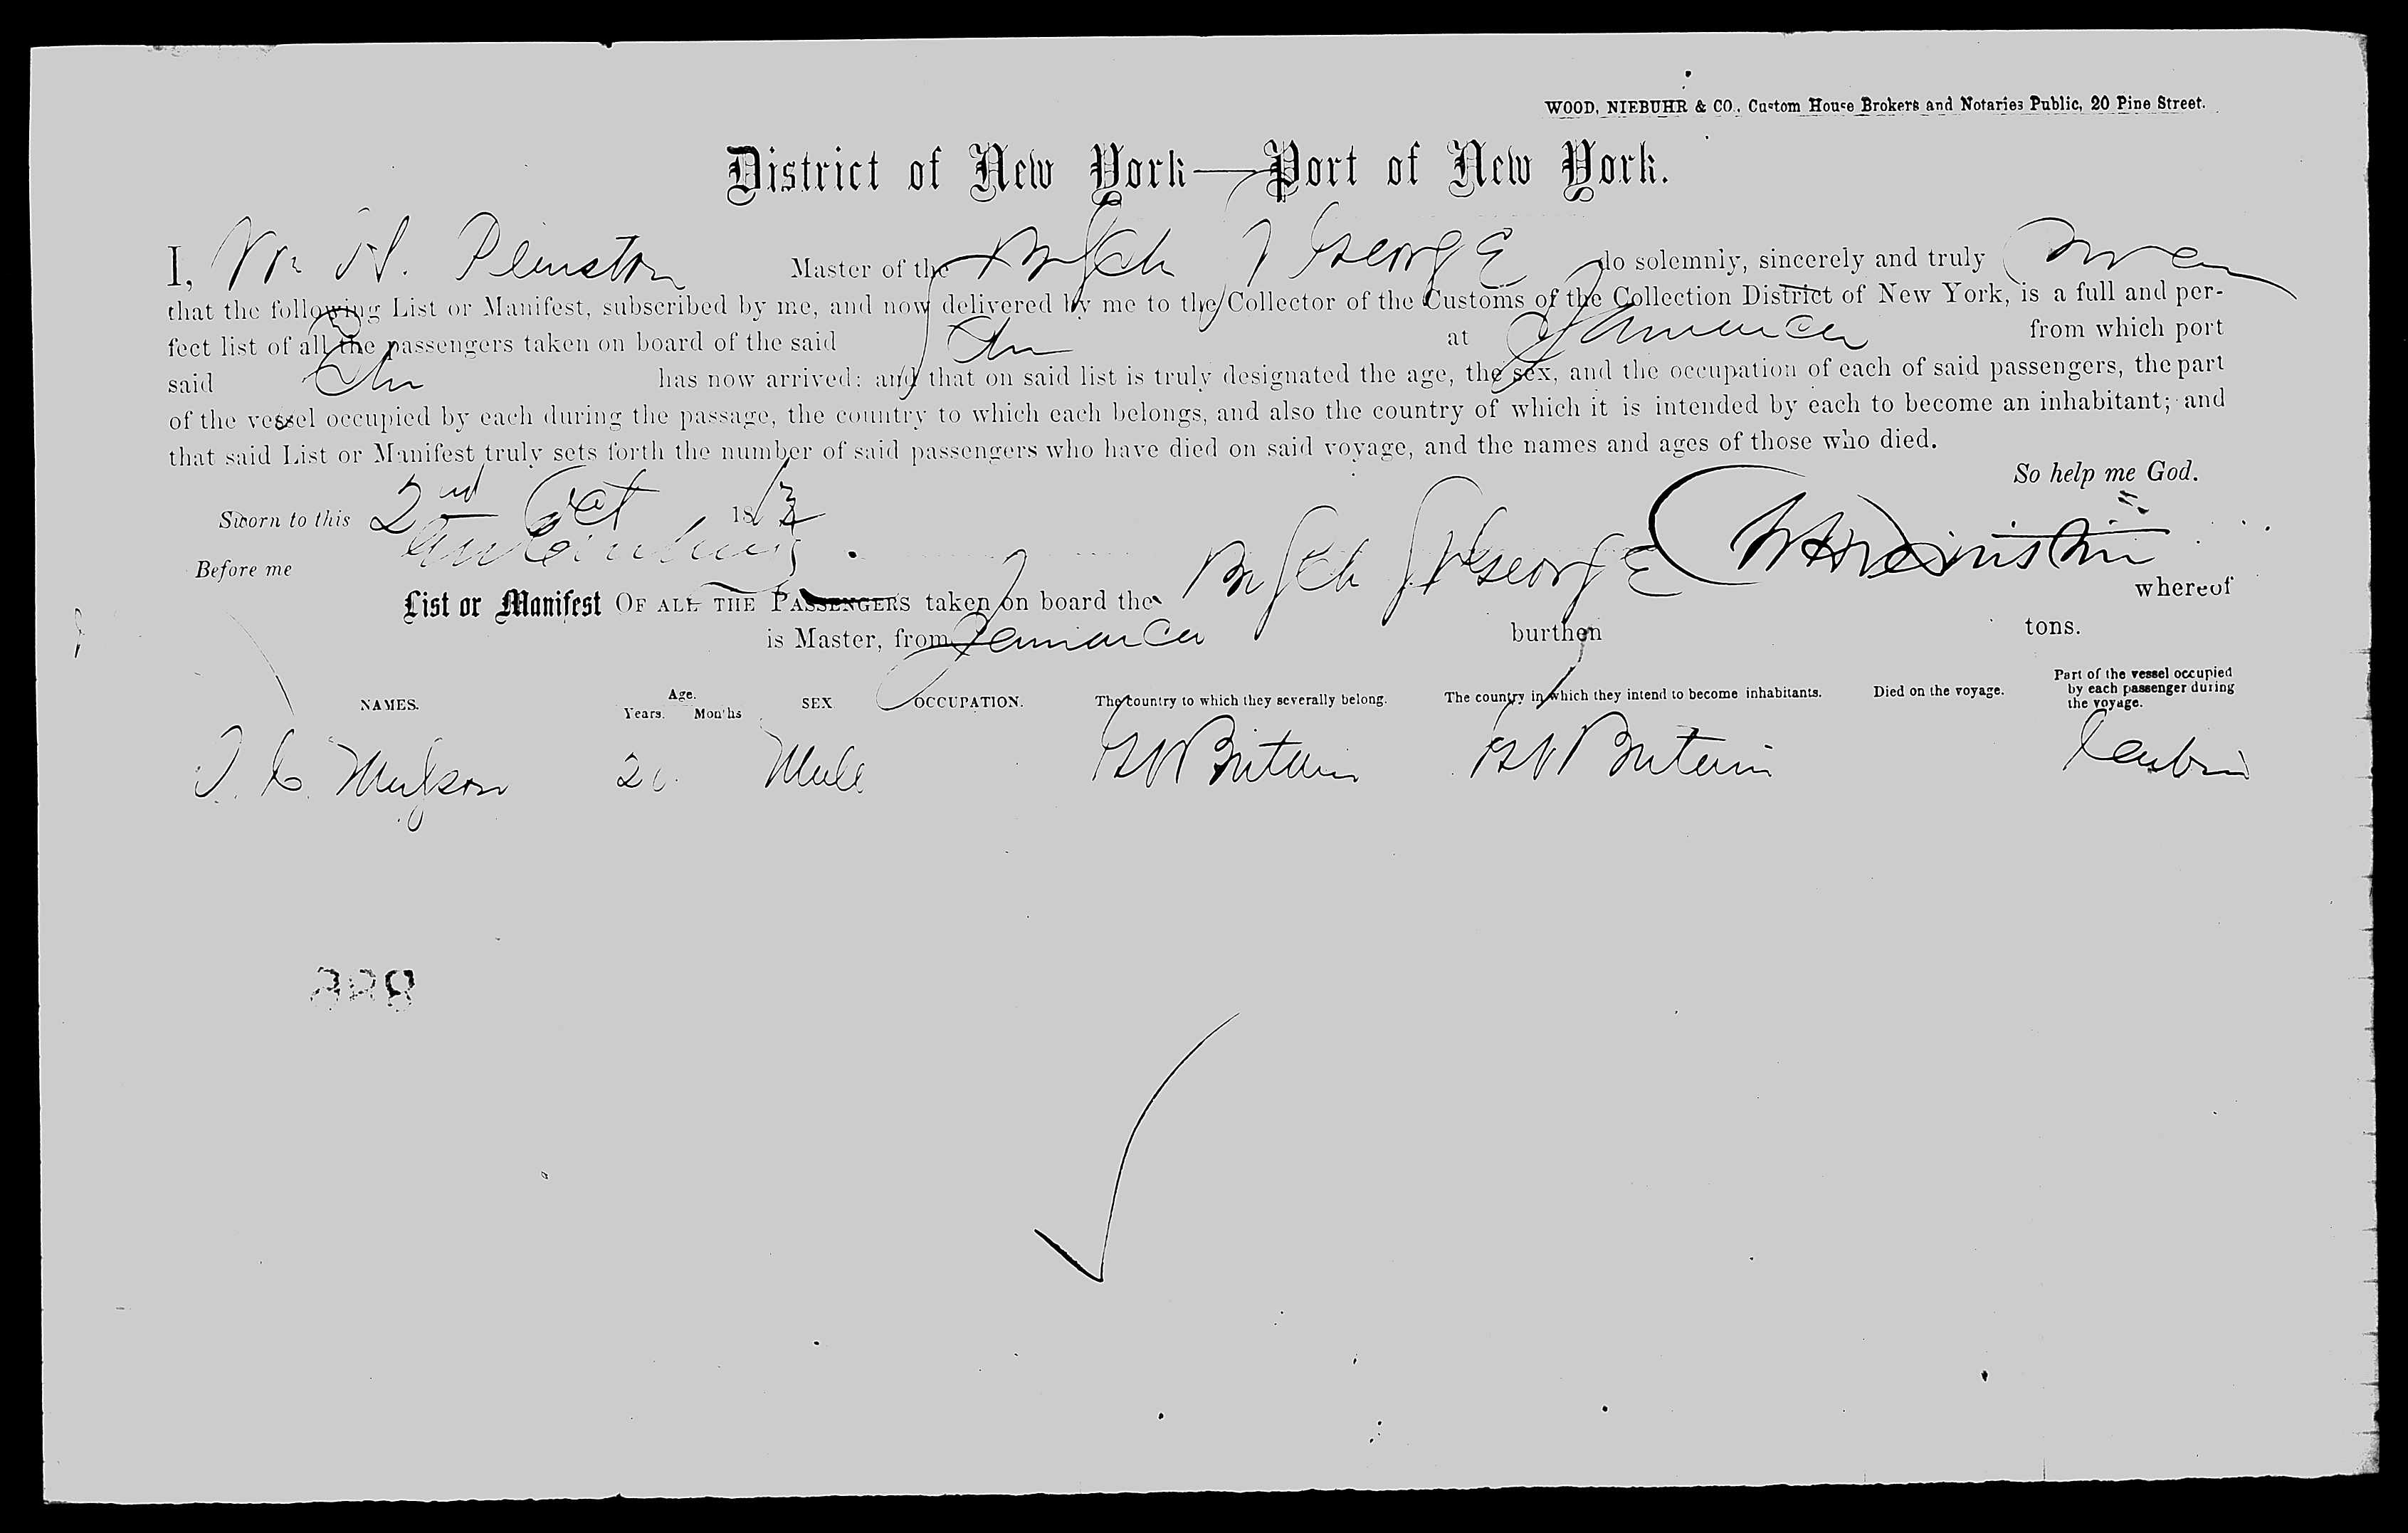 WOOD, NIEBUHR & CO., Custom House Brokers and Notaries Public, 20 Pine Street.
District of New York—Port of New York.
I, Wm H. Master of the Br Sch George do solemnly, sincerely and truly swear
that the following List or Manifest, subscribed by me, and now delivered by me to the Collector of the Customs of the Collection District of New York, is a full and per-
fect list of all the passengers taken on board of the said at Jamaica from which port
said has now arrived: and that on said list is truly designated the age, the sex, and the occupation of each of said passengers, the part
of the vessel occupied by each during the passage, the country to which each belongs, and also the country of which it is intended by each to become an inhabitant; and
that said List or Manifest truly sets forth the number of said passengers who have died on said voyage, and the names and ages of those who died.
So help me God.
Sworn to this 2nd Oct 18
Before me
List or Manifest OF ALL THE PASSENGERS taken on board the Br Sch George whereof
is Master, from Jamaica burthen tons.
NAMES. Age. Years. Months SEX OCCUPATION. The country to which they severally belong. The country in which they intend to become inhabitants. Died on the voyage. Part of the vessel occupied by each passenger during the voyage.
Male Gt Britain Gt Britain Cabin